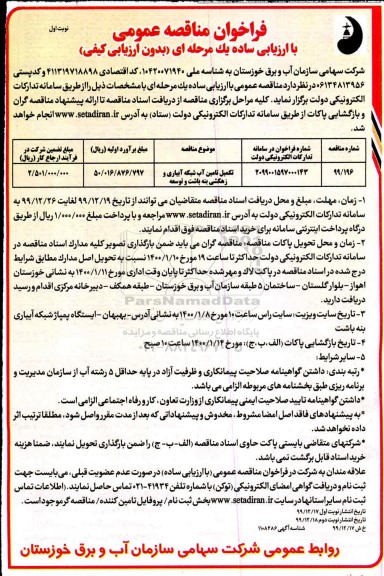 نوبت اول
فراخوان مناقصه عمومی
با ارزیابی ساده یك مرحله ای (بدون ارزیابی کیفی)
شرکت سهامی سازمان آب و برق خوزستان به شناسه ملی ۱۰۴۲۰۰۷۱۹۴۰، کد اقتصادی ۴۱۱۳۱۹۷۱۸۸۹۸ و کدپستی
۰۶۱۳۴۸۱۳۹۵۶ در نظر دارد مناقصه عمومی با ارزیابی ساده یك مرحله ای با مشخصات ذیل را از طریق سامانه تدارکات
الکترونیکی دولت برگزار نماید. کلیه مراحل برگزاری مناقصه از دریافت اسناد مناقصه تا ارائه پیشنهاد مناقصه گران
و بازگشایی پاکات از طریق سامانه تدارکات الکترونیکی دولت (ستاد) به آدرس www.setadiran.ir انجام خواهد
شد.
شماره مناقصه
شماره فراخوان در سامانه تدارکات الکترونیکی دولت
موضوع مناقصه
مبلغ برآورد اولیه (ریال)
مبلغ تضمین شرکت در فرآیند ارجاع کار (ریال)
۹۹/۱۹۶
۲۰۹۹۰۰۱۵۹۷۰۰۰۱۴۳
تکمیل تامین آب شبکه آبیاری و زهکشی بنه باشت و توسعه
۵۰/۰۱۶/۸۷۶/۷۹۷
۲/۵۰۱/۰۰۰/۰۰۰
۱- زمان، مهلت، مبلغ و محل دریافت اسناد مناقصه متقاضیان می توانند از تاریخ ۹۹/۱۲/۱۹ لغایت ۹۹/۱۲/۲۶ به
سامانه تدارکات الکترونیکی دولت به آدرس www.setadiran.ir مراجعه و با پرداخت مبلغ ۱/۰۰۰/۰۰۰ ریال از طریق
درگاه پرداخت اینترنتی سامانه برای خرید اسناد مناقصه فوق اقدام نمایند.
۲- زمان و محل تحویل پاکات مناقصه: مناقصه گران می باید ضمن بارگذاری تصویر کلیه مدارك اسناد مناقصه در
سامانه تدارکات الکترونیکی دولت حداکثر تا ساعت ۱۹ مورخ ۱۴۰۰/۱/۱۰ نسبت به تحویل اصل مدارك مطابق شرایط
درج شده در اسناد مناقصه در پاکت لاك و مهر شده حداکثر تا پایان وقت اداری مورخ ۱۴۰۰/۱/۱۱ به نشانی خوزستان
اهواز - بلوار گلستان - ساختمان ۵ طبقه سازمان آب و برق خوزستان - طبقه همکف - دبیرخانه مرکزی اقدام و رسید
دریافت دارید.
۳- تاریخ سایت ویزیت: سایت راس ساعت ۱۰ مورخ ۱۴۰۰/۱/۸ به نشانی آدرس: بهبهان - ایستگاه پمپاژ شبکه آبیاری
بنه باشت
۴- تاریخ بازگشایی پاکات (الف، ب، ج): مورخ ۱۴۰۰/۱/۱۴ ساعت ۱۰ صبح
۵- سایر شرایط:
*رتبه بندی: داشتن گواهینامه صلاحیت پیمانکاری و ظرفیت آزاد در پایه حداقل ۵ رشته آب از سازمان مدیریت و
برنامه ریزی طبق بخشنامه های مربوطه الزامی می باشد.
*داشتن گواهینامه تایید صلاحیت ایمنی پیمانکاری از وزارت تعاون، کار و رفاه اجتماعی الزامی است.
*به پیشنهادهای فاقد اصل امضا مشروط، مخدوش و پیشنهاداتی که بعد از مدت مقرر واصل شود، مطلقا ترتیب اثر
داده نخواهد شد.
*شرکتهای متقاضی بایستی پاکت حاوی اسناد مناقصه (الف-ب-ج) را ضمن بارگذاری تحویل نمایند، ضمنا هزینه
خرید اسناد قابل برگشت نمی باشد.
علاقه مندان به شرکت در فراخوان مناقصه عمومی (با ارزیابی ساده) در صورت عدم عضویت قبلی، می بایست جهت
ثبت نام و دریافت گواهی امضای الکترونیکی (توکن) با شماره تلفن ۴۱۹۳۴-۰۲۱ تماس حاصل نمایند. (اطلاعات تماس
ثبت نام سایر استانها در سایت www.setadiran.ir بخش ثبت نام / پروفایل تامین کننده/ مناقصه گر موجود است.
تاریخ انتشار نوبت اول ۹۹/۱۲/۱۷
تاریخ انتشار نوبت دوم ۹۹/۱۲/۱۸
خ ش ۹۹/۱۲/۱۷
شناسه آگهی ۱۱۰۸۴۸۶
روابط عمومی شرکت سهامی سازمان آب و برق خوزستان
ParsNamadData